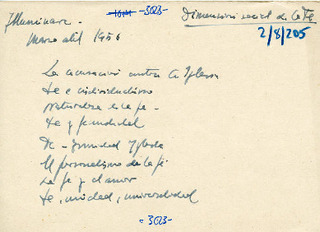 -3023-
Dimensión social de la Fe
2/8/205
Marzo abril 1956
La acusación contra la Iglesia
Fe e individualismo
naturaleza de la fe -
Fe y
El personalismo de la fe
La fe y el amor
Fe, unidad, universalidad
-3023-